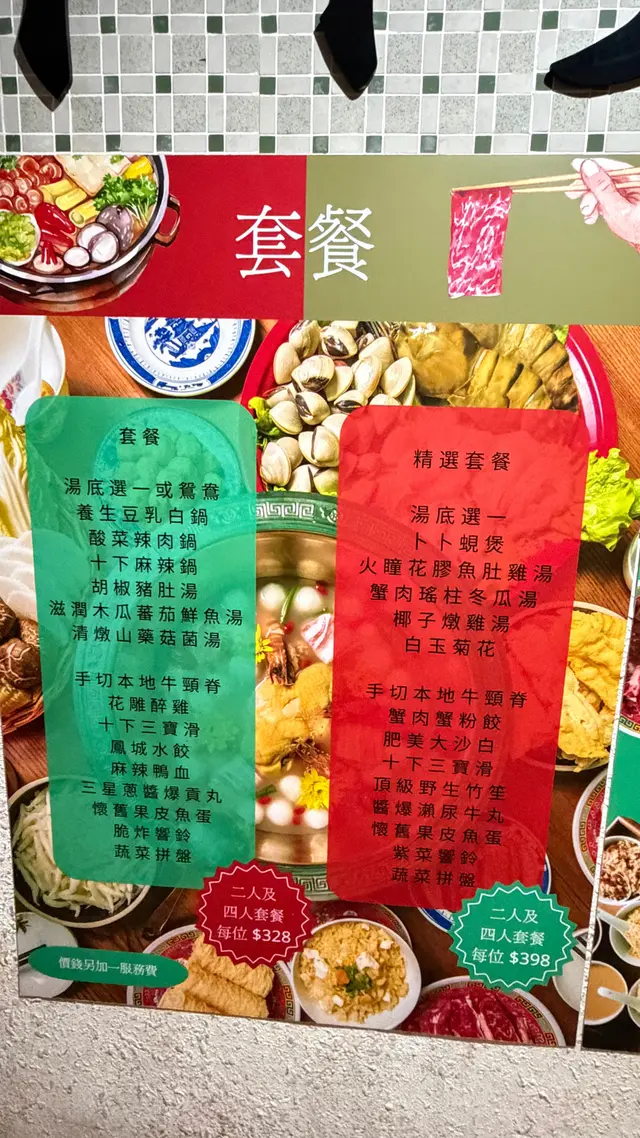 套餐
套餐
湯底選一或鴛鴦
養生豆乳白鍋
酸菜辣肉鍋
十下麻辣鍋
胡椒豬肚湯
滋潤木瓜蕃茄鮮魚湯
清燉山藥菇菌湯
手切本地牛頸脊
花雕醉雞
十下三寶滑
鳳城水餃
麻辣鴨血
三星蔥醬爆貢丸
懷舊果皮魚蛋
脆炸響鈴
蔬菜拼盤
二人及
四人套餐
每位 $328
價錢另加一服務費
精選套餐
湯底選一
卜卜蜆煲
火瞳花膠魚肚雞湯
蟹肉瑤柱冬瓜湯
椰子燉雞湯
白玉菊花
手切本地牛頸脊
蟹肉蟹粉餃
肥美大沙白
十下三寶滑
頂級野生竹笙
醬爆瀨尿牛丸
懷舊果皮魚蛋
紫菜響鈴
蔬菜拼盤
二人及
四人套餐
每位 $398